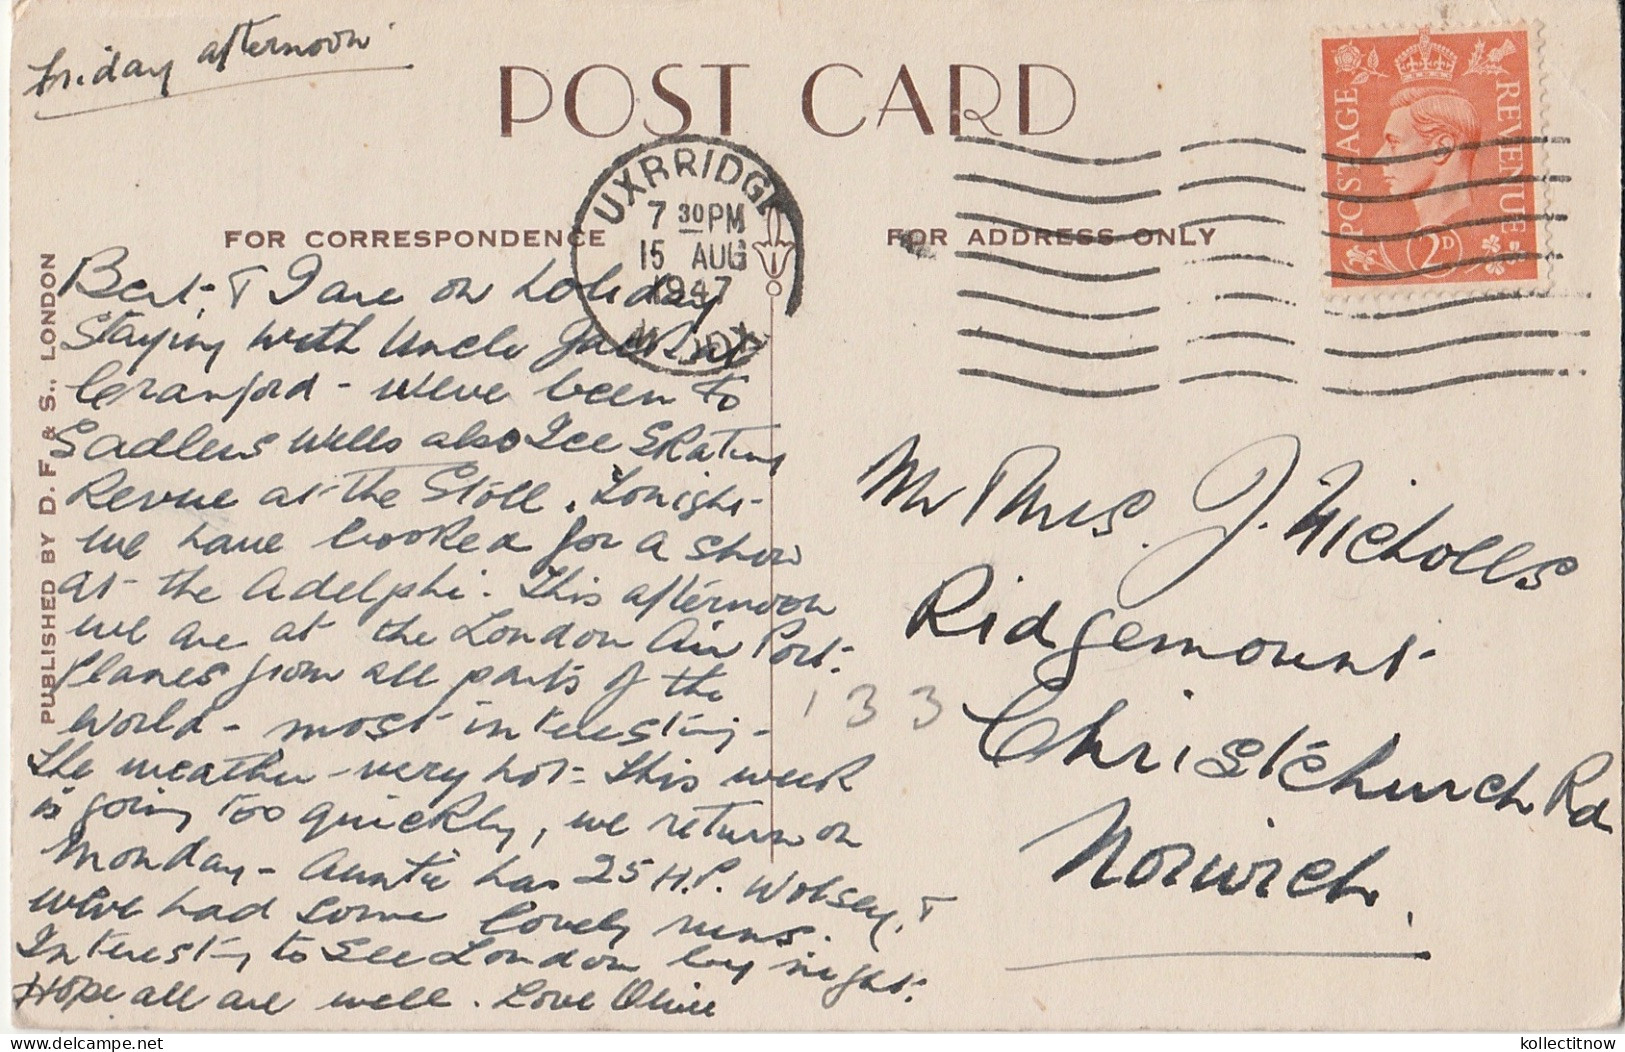 Friday afternoon
POST CARD
POSTAGE
REVENUE
2D
UXBRIDGE
7 30 PM
15 AUG
1947
FOR CORRESPONDENCE
FOR ADDRESS ONLY
PUBLISHED BY D. F. & S., LONDON
Bert & I are on holiday
Staying with Uncle Jack at
Cranford - weve been to
Sadlers Wells also Ice Skating
Revue at the Stoll. Tonight
we have booked for a show
at the Adelphi. This afternoon
we are at the London Air Port.
Planes from all parts of the
world - most interesting -
The weather very hot - This week
is going too quickly, we return on
Monday - Auntie has 25 H.P. Wolsey, &
weve had some lovely runs.
Interesting to see London by night.
Hope all are well. Love Olive
133
Mr & Mrs. J. Nicholls
Ridgemount
Christchurch Rd
Norwich.
kollectitnow